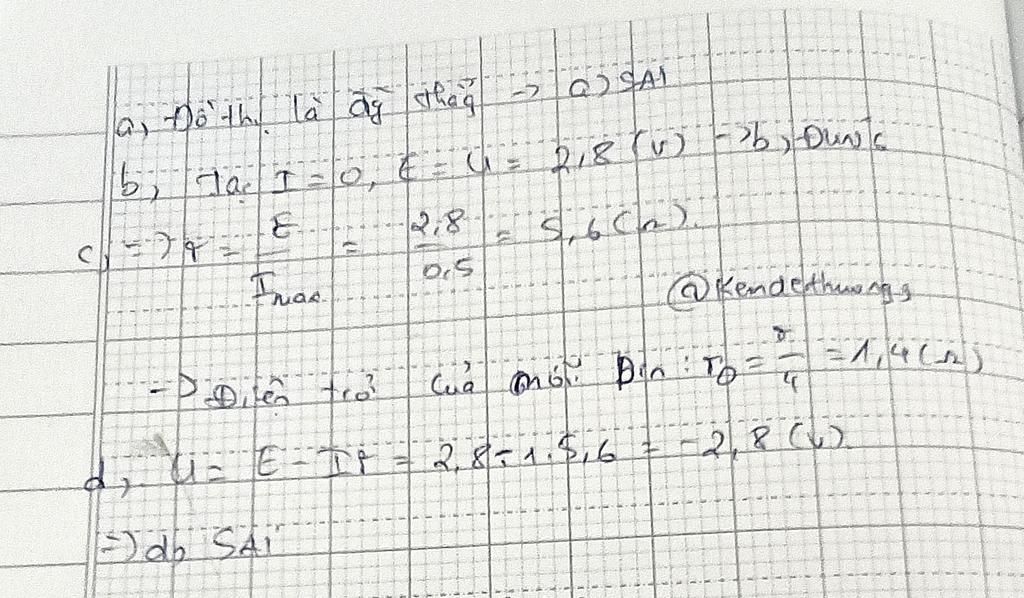 a, Đồ thị là đg thẳg -> a) SAI
b, Tại I = 0, E = U = 2,8 (V) -> b, Đúng
c, => r = E / Imax = 2,8 / 0,5 = 5,6 (Ω).
@Kendethuongs
-> Điện trở của mỗi Pin: r0 = r/4 = 1,4 (Ω)
d, U = E - Ir = 2,8 - 1.5,6 = -2,8 (V)
=> d, SAI